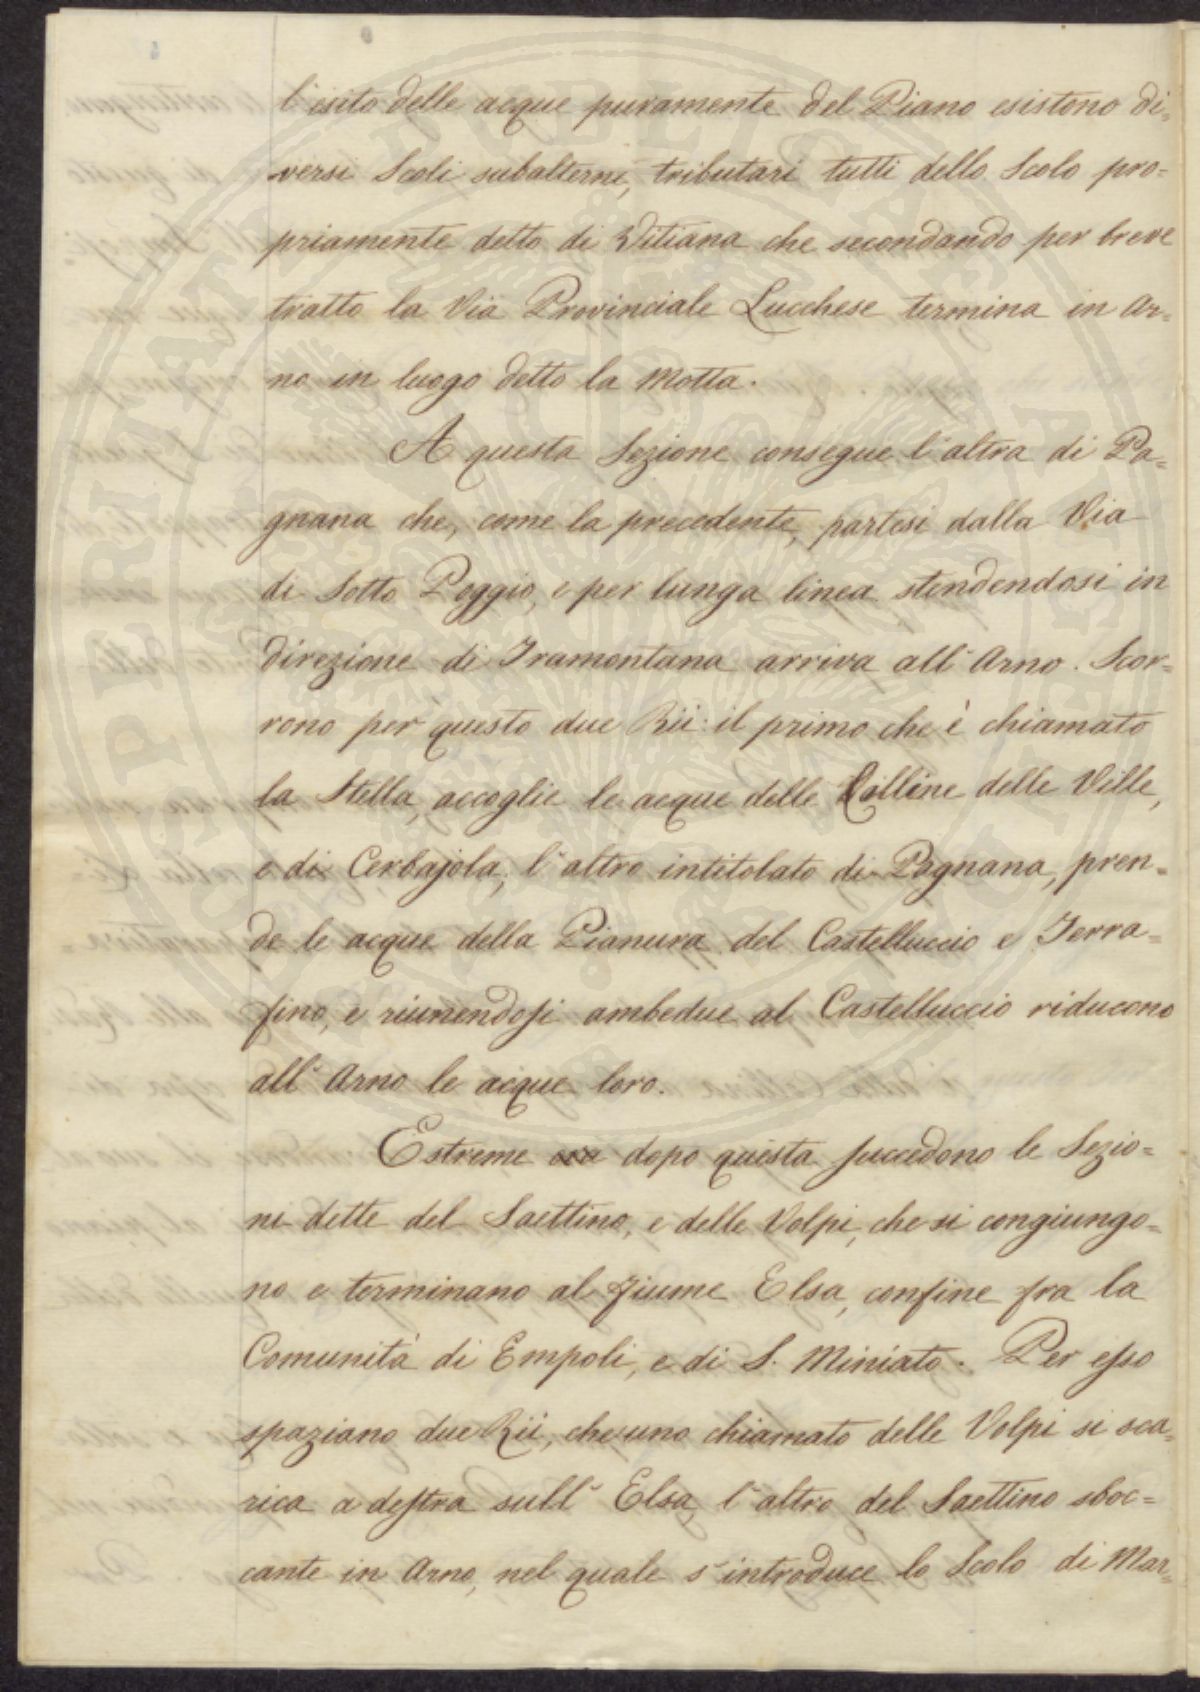 l'esito delle acque puramente del Piano esistono di=
versi Scoli subalterni, tributari tutti dello Scolo pro=
priamente detto di Vitiana che secondando per breve
tratto la Via Provinciale Lucchese termina in Ar=
no in luogo detto la Motta.
A questa Sezione consegue l'altra di Pa=
gnana che, come la precedente, partesi dalla Via
di Sotto Poggio, e per lunga linea stendendosi in
direzione di Tramontana arriva all'Arno. Scor=
rono per questo due Rii: il primo che è chiamato
la Stella, accoglie le acque delle Colline delle Ville,
e di Cerbajola; l'altro intitolato di Pagnana, pren=
de le acque della Pianura del Castelluccio e Terra=
fino, e riunendosi ambedue al Castelluccio riducono
all'Arno le acque loro.
Estreme ora dopo questa succedono le Sezio=
ni dette del Saettino, e delle Volpi, che si congiungo=
no e terminano al fiume Elsa, confine fra la
Comunità di Empoli, e di S. Miniato. Per esso
spaziano due Rii, che uno chiamato delle Volpi si sca=
rica a destra sull'Elsa, l'altro del Saettino sboc=
cante in Arno, nel quale s'introduce lo Scolo di Mar=
PROSPERITATE PUBLICAE AUGENDAE